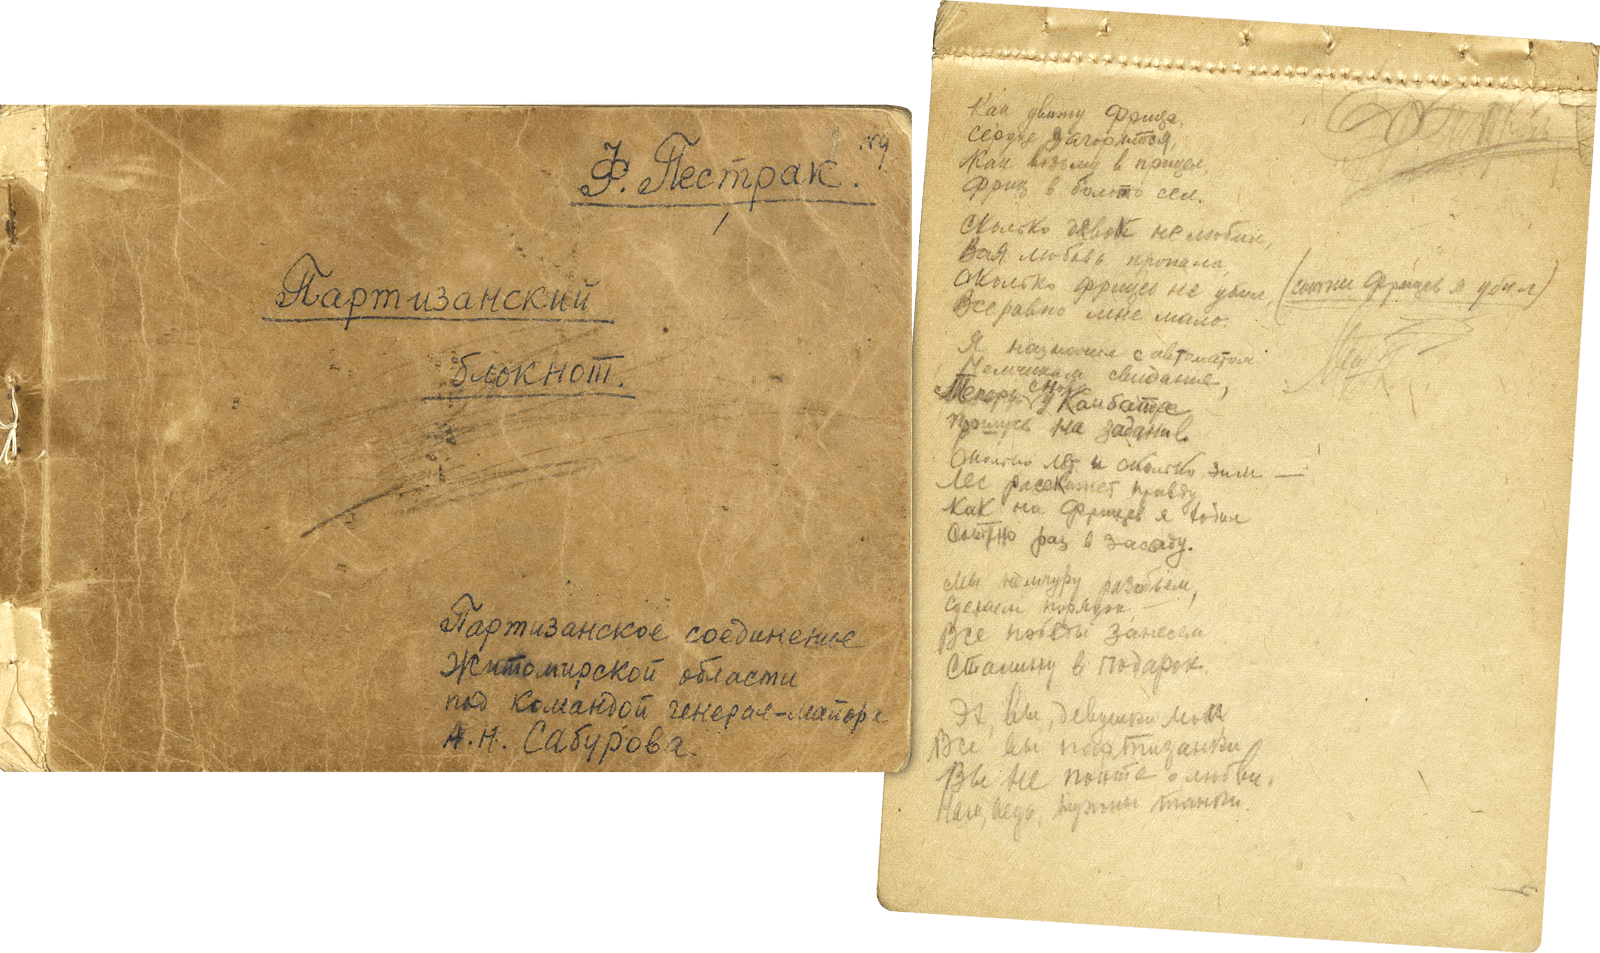 Ф. Пестрак.
Партизанский
блокнот.
Партизанское соединение
Житомирской области
под командой генерал-майора
А.Н. Сабурова.
Как увижу фрица,
сердце загорится,
Как возьму в прицел,
Фриц в болото сел.
Сколько девок не любил,
Вся любовь пропала,
Сколько фрицев не убил, (сотни фрицев я убил)
Всеравно мне мало.
Я назначил с автоматом
Немчикам свидания,
Теперь снова у Комбата
Прошусь на задание.
Сколько лет и сколько зим —
Лес расскажет правду
Как на Фрицев я ходил
Сотню раз в засаду.
Мы немчуру разобьем,
Сделаем порядок —
Все победы занесем
Сталину в подарок.
Эх, вы, девушки мои
Все, вы партизанки,
Вы не пойте о любви.
Нам, ведь, нужны танки.